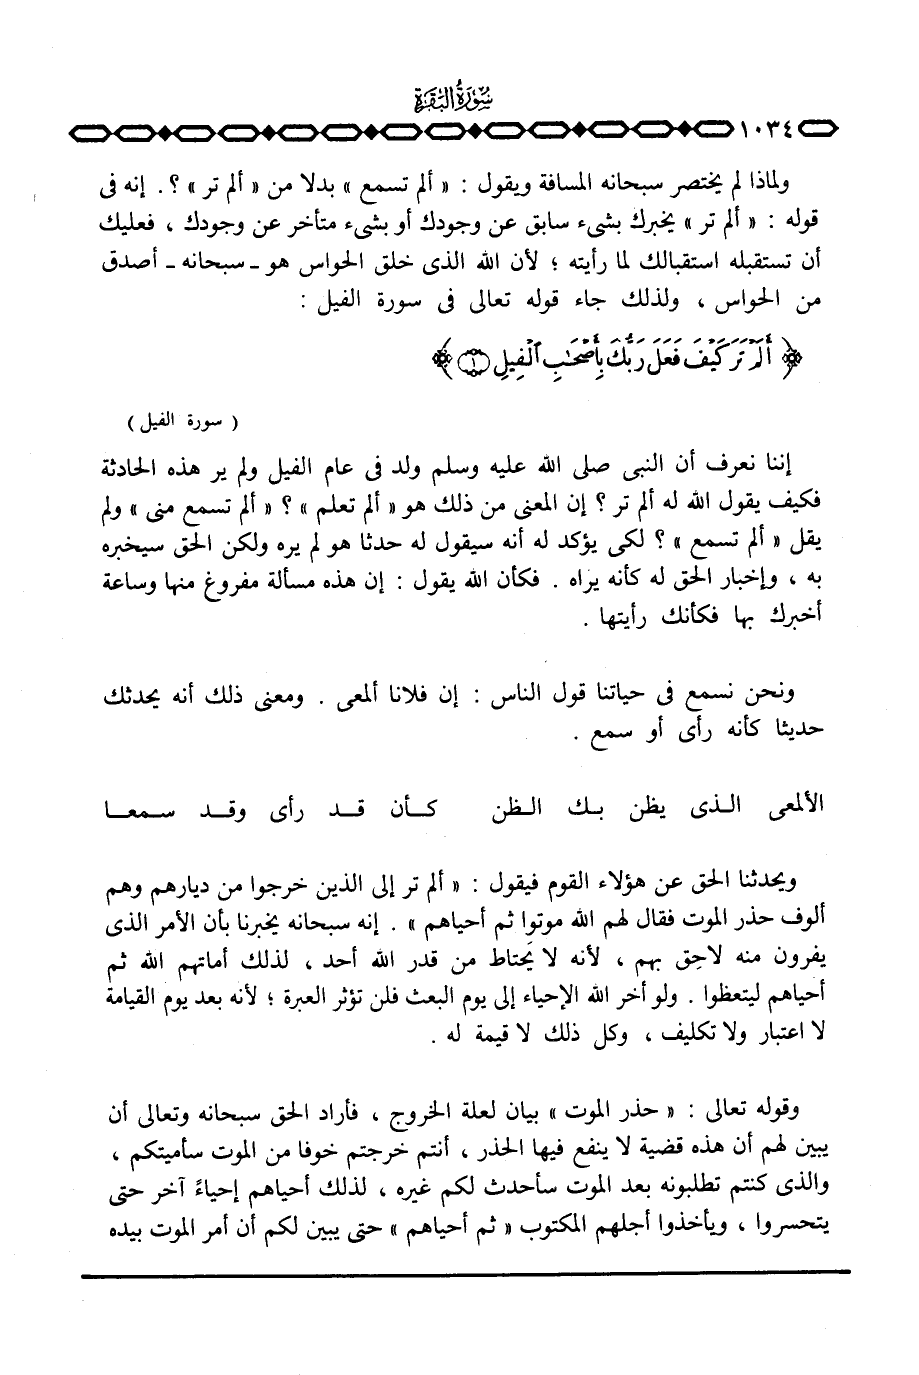 سُورَةُ الْبَقَرَةِ
١٠٣٤
ولماذا لم يختصر سبحانه المسافة ويقول : « ألم تسمع » بدلا من « ألم تر » ؟. إنه فى
قوله : « ألم تر » يخبرك بشىء سابق عن وجودك أو بشىء متأخر عن وجودك ، فعليك
أن تستقبله استقبالك لما رأيته ؛ لأن الله الذى خلق الحواس هو ـ سبحانه ـ أصدق
من الحواس ، ولذلك جاء قوله تعالى فى سورة الفيل :
﴿ أَلَمْ تَرَ كَيْفَ فَعَلَ رَبُّكَ بِأَصْحَٰبِ ٱلْفِيلِ ۝١ ﴾
( سورة الفيل )
إننا نعرف أن النبى صلى الله عليه وسلم ولد فى عام الفيل ولم ير هذه الحادثة
فكيف يقول الله له ألم تر ؟ إن المعنى من ذلك هو « ألم تعلم » ؟ « ألم تسمع منى » ولم
يقل « ألم تسمع » ؟ لكى يؤكد له أنه سيقول له حدثا هو لم يره ولكن الحق سيخبره
به ، وإخبار الحق له كأنه يراه . فكأن الله يقول : إن هذه مسألة مفروغ منها وساعة
أخبرك بها فكأنك رأيتها .
ونحن نسمع فى حياتنا قول الناس : إن فلانا ألمعى . ومعنى ذلك أنه يحدثك
حديثا كأنه رأى أو سمع .
الألمعى الـذى يظن بـك الـظن كـأن قـد رأى وقـد سـمعـا
ويحدثنا الحق عن هؤلاء القوم فيقول : « ألم تر إلى الذين خرجوا من ديارهم وهم
ألوف حذر الموت فقال لهم الله موتوا ثم أحياهم » . إنه سبحانه يخبرنا بأن الأمر الذى
يفرون منه لاحِق بهم ، لأنه لا يَحتاط من قدر الله أحد ، لذلك أماتهم الله ثم
أحياهم ليتعظوا . ولو أخر الله الإحياء إلى يوم البعث فلن تؤثر العبرة ؛ لأنه بعد يوم القيامة
لا اعتبار ولا تكليف ، وكل ذلك لا قيمة له .
وقوله تعالى : « حذر الموت » بيان لعلة الخروج ، فأراد الحق سبحانه وتعالى أن
يبين لهم أن هذه قضية لا ينفع فيها الحذر ، أنتم خرجتم خوفا من الموت سأميتكم ،
والذى كنتم تطلبونه بعد الموت سأحدث لكم غيره ، لذلك أحياهم إحياءً آخر حتى
يتحسروا ، ويأخذوا أجلهم المكتوب « ثم أحياهم » حتى يبين لكم أن أمر الموت بيده